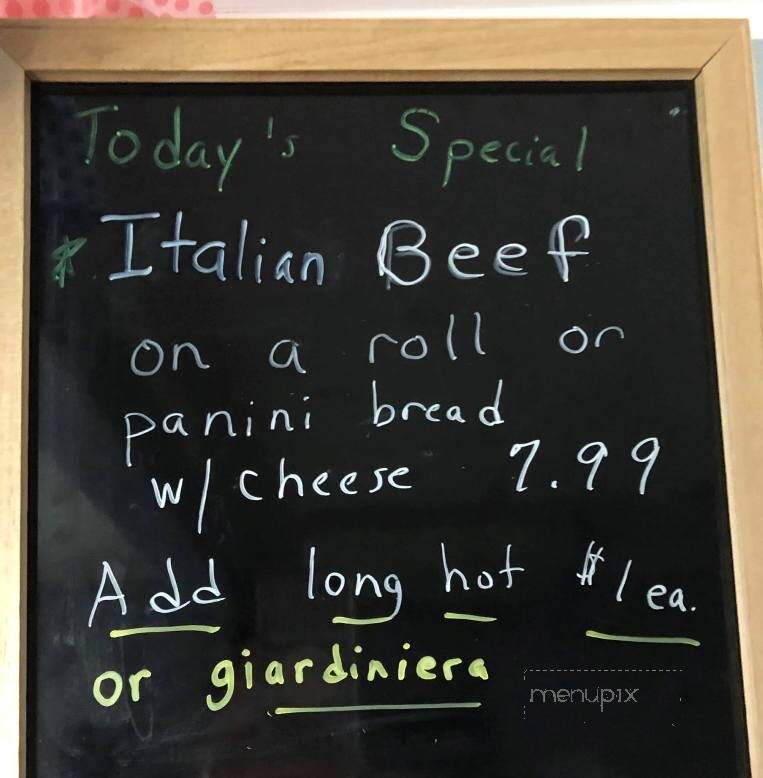 Today's Special
* Italian Beef
on a roll or
panini bread
w/ cheese 7.99
Add long hot $1 ea.
or giardiniera
menupix